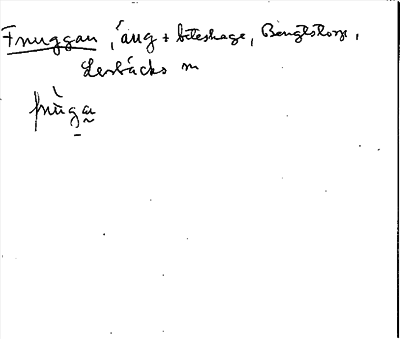 Fnuggan, äng + beteshage, Bengtstorp,
Lerbäcks sn
fnùga̰